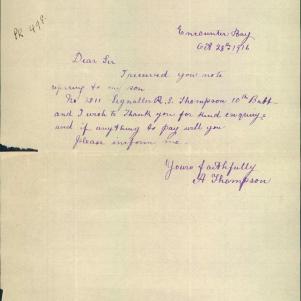 PR 498.
Encounter Bay
Oct 28th 1916
Dear Sir
I received you note
refering to my son
No 3911 Signaller R. S. Thompson 10th Batt
and I wish to thank you for kind enquiry
and if anything to pay will you
please inform me.
Yours faithfully
A Thompson